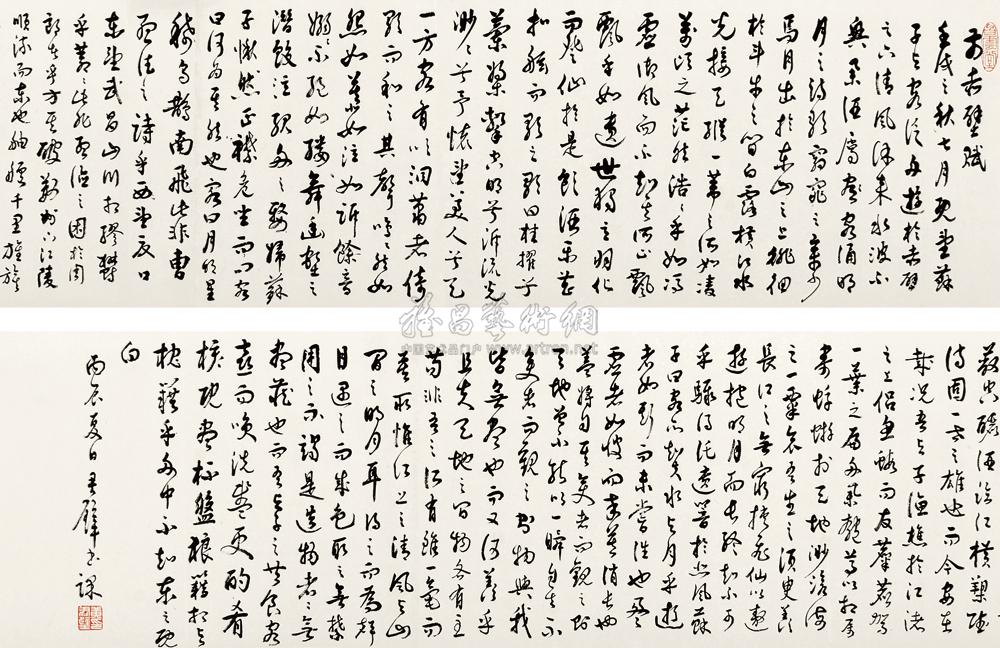 前赤壁賦
壬戌之秋七月既望蘇
子与客泛舟遊於赤壁
之下清風徐来水波不
興舉酒屬客誦明
月之詩歌窈窕之章少
焉月出於東山之上徘徊
於斗牛之間白露橫江水
光接天縱一葦之所如凌
萬頃之茫然浩浩乎如馮
虛御風而不知其所止飄
飄乎如遺世獨立羽化
而登仙於是飲酒樂甚
扣舷而歌之歌曰桂櫂兮
蘭槳擊空明兮泝流光
渺渺兮予懷望美人兮天
一方客有吹洞簫者倚
歌而和之其聲嗚嗚然如
怨如慕如泣如訴餘音
嫋嫋不絕如縷舞幽壑之
潛蛟泣孤舟之嫠婦蘇
子愀然正襟危坐而問客
曰何為其然也客曰月明星
稀烏鵲南飛此非曹
孟德之詩乎西望夏口
東望武昌山川相繆鬱
乎蒼蒼此非孟德之困於周
郎者乎方其破荆州下江陵
順流而東也舳艫千里旌旗
蔽空釃酒臨江橫槊賦
詩固一世之雄也而今安在
哉況吾与子漁樵於江渚
之上侶魚蝦而友麋鹿駕
一葉之扁舟舉匏尊以相屬
寄蜉蝣於天地渺滄海
之一粟哀吾生之須臾羨
長江之無窮挾飛仙以遨
遊抱明月而長終知不可
乎驟得託遺響於悲風蘇
子曰客亦知夫水与月乎逝
者如斯而未嘗往也盈
虛者如彼而卒莫消長也
蓋將自其變者而觀之則
天地曾不能以一瞬自其不
變者而觀之則物與我
皆無盡也而又何羨乎
且夫天地之間物各有主
苟非吾之所有雖一毫而
莫取惟江上之清風与山
間之明月耳得之而為聲
目遇之而成色取之無禁
用之不竭是造物者之無
盡藏也而吾与子之共食客
喜而笑洗盞更酌肴
核既盡杯盤狼籍相与
枕藉乎舟中不知東方之既
白
丙辰夏日君璧書課
雅昌藝術網
中国艺术品门户 www.artron.net